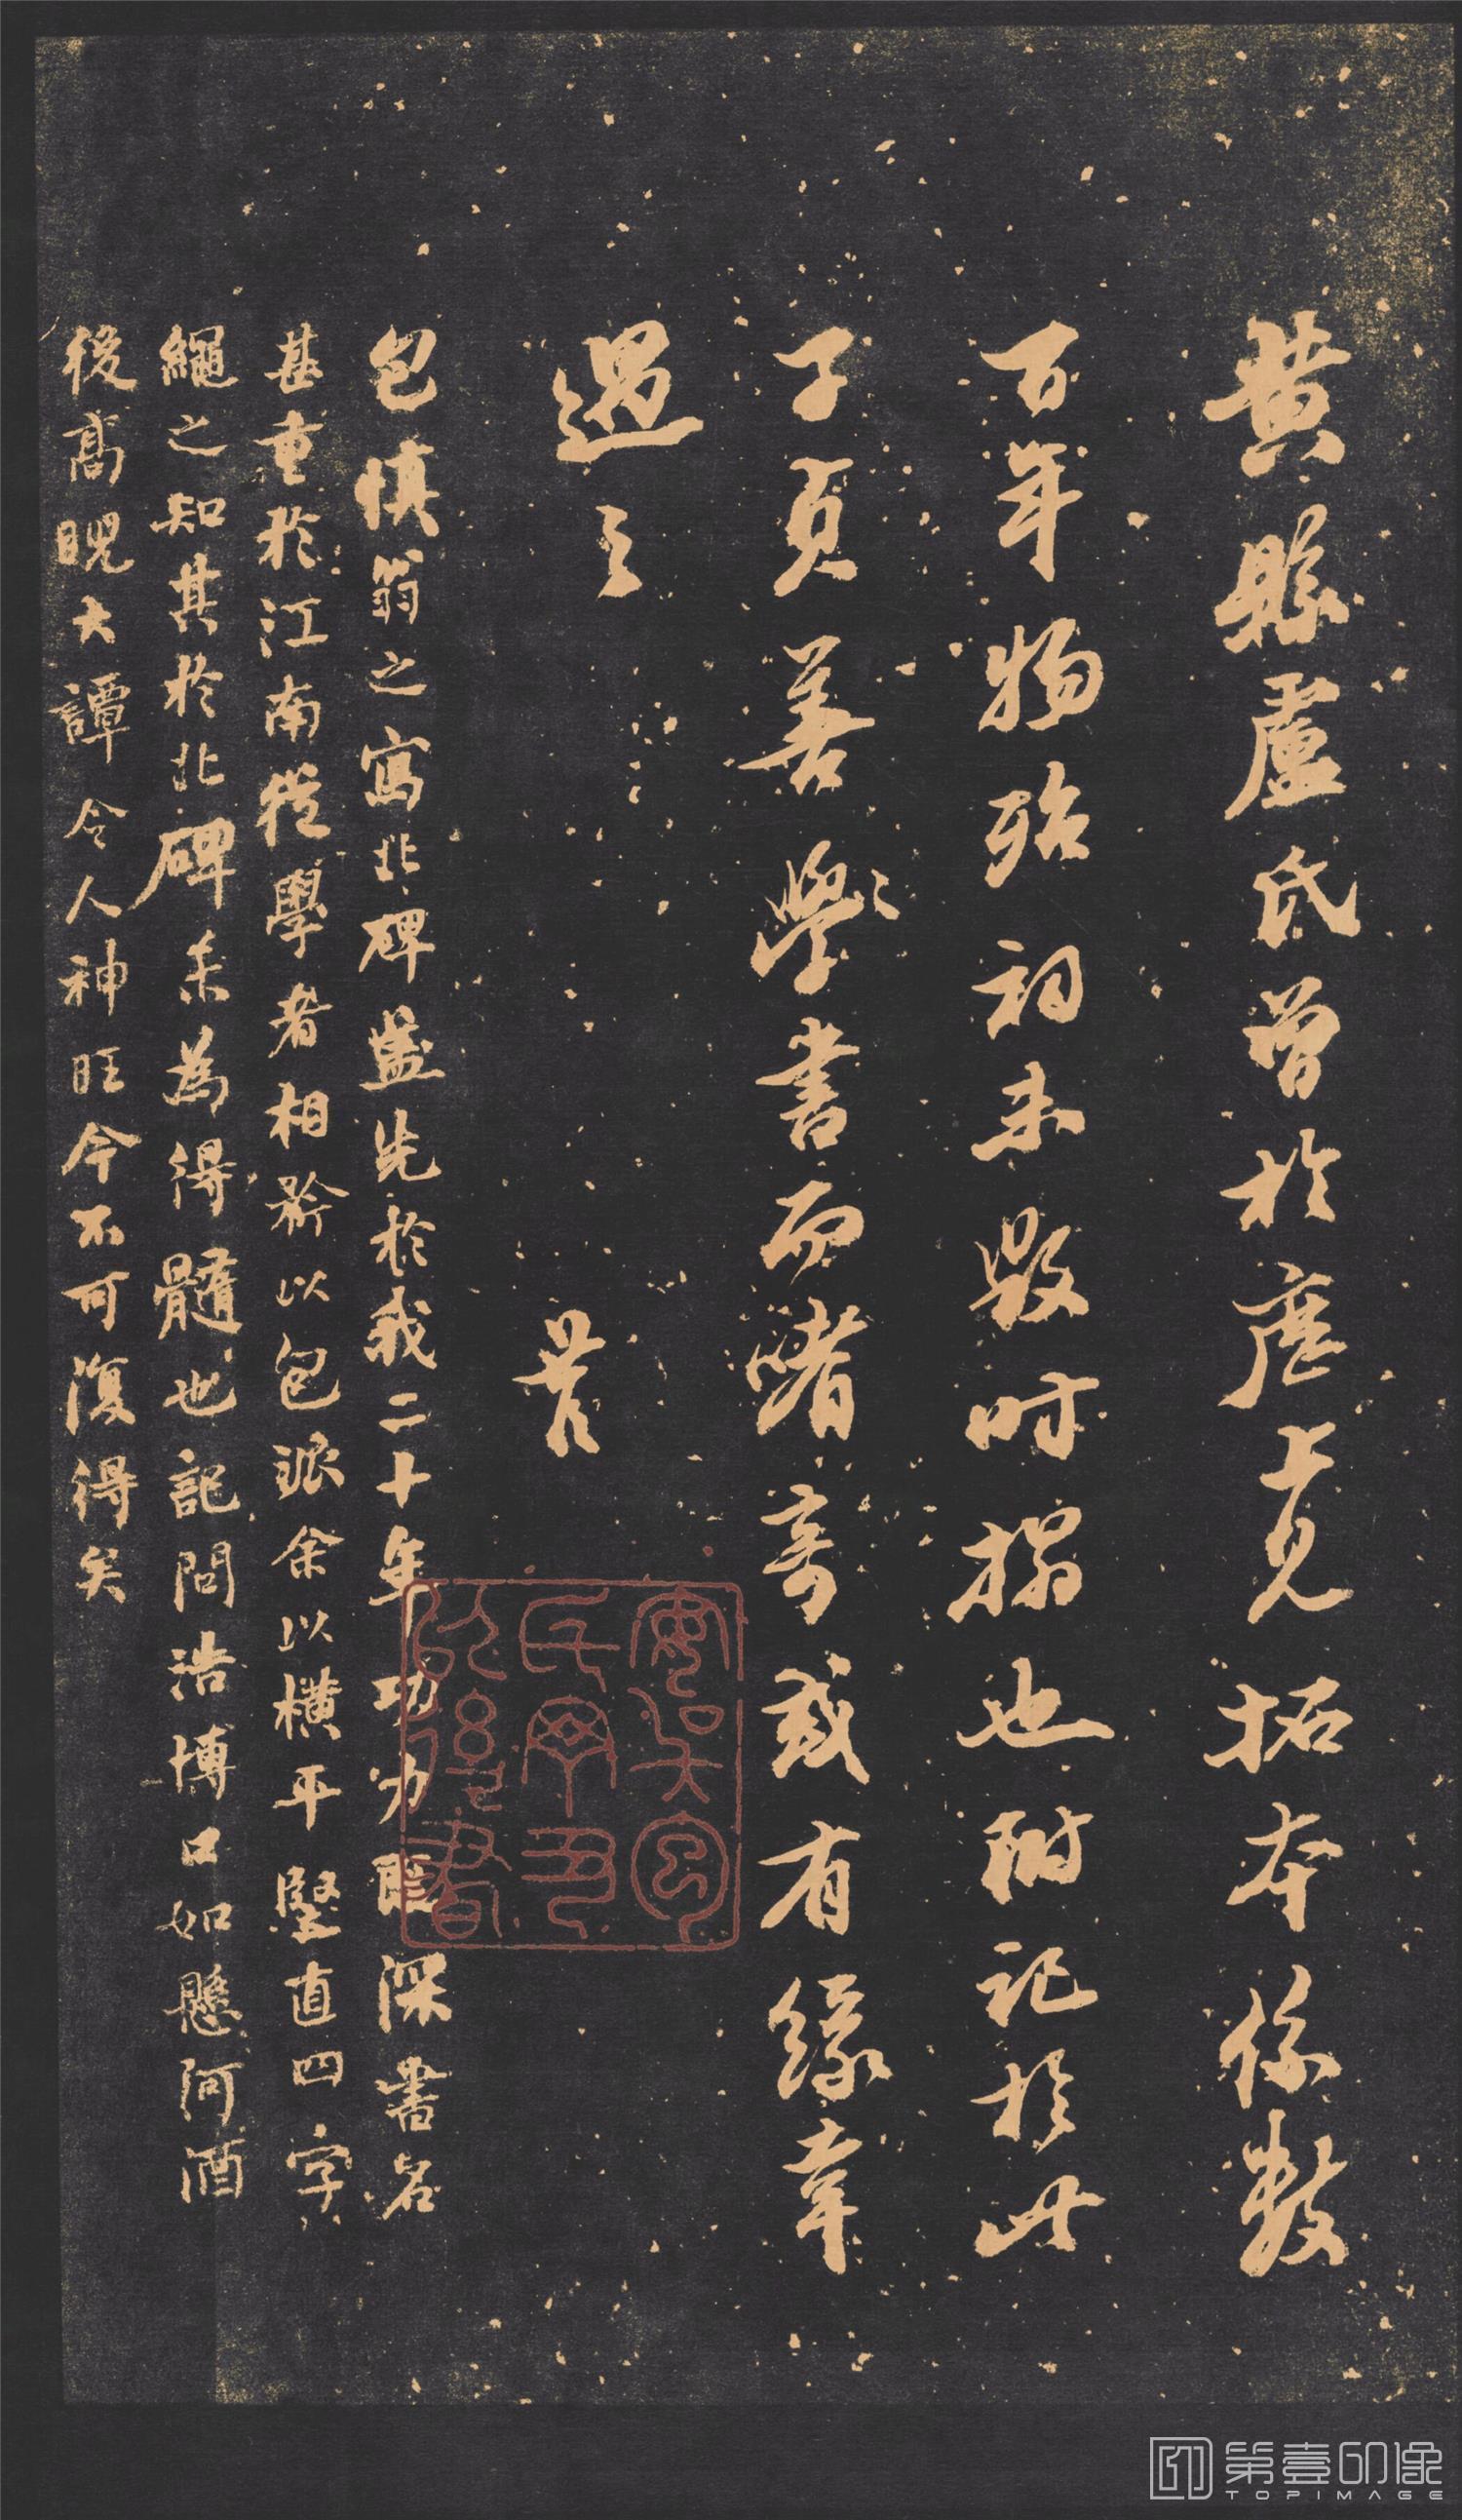 黄縣盧氏曾於歷上見拓本係數
百年物殆祠未毀时搨也附記於此
子貞善學書而嗜奇或有緣幸
遇之
包慎翁之寫北碑蓋先於我二十年功力既深書名
甚重於江南從學者相矜以包派余以橫平豎直四字
繩之知其於北碑未為得髓也記問浩博口如懸河酒
後高睨大譚令人神旺今不可復得矣
第壹印像
TOPIMAGE